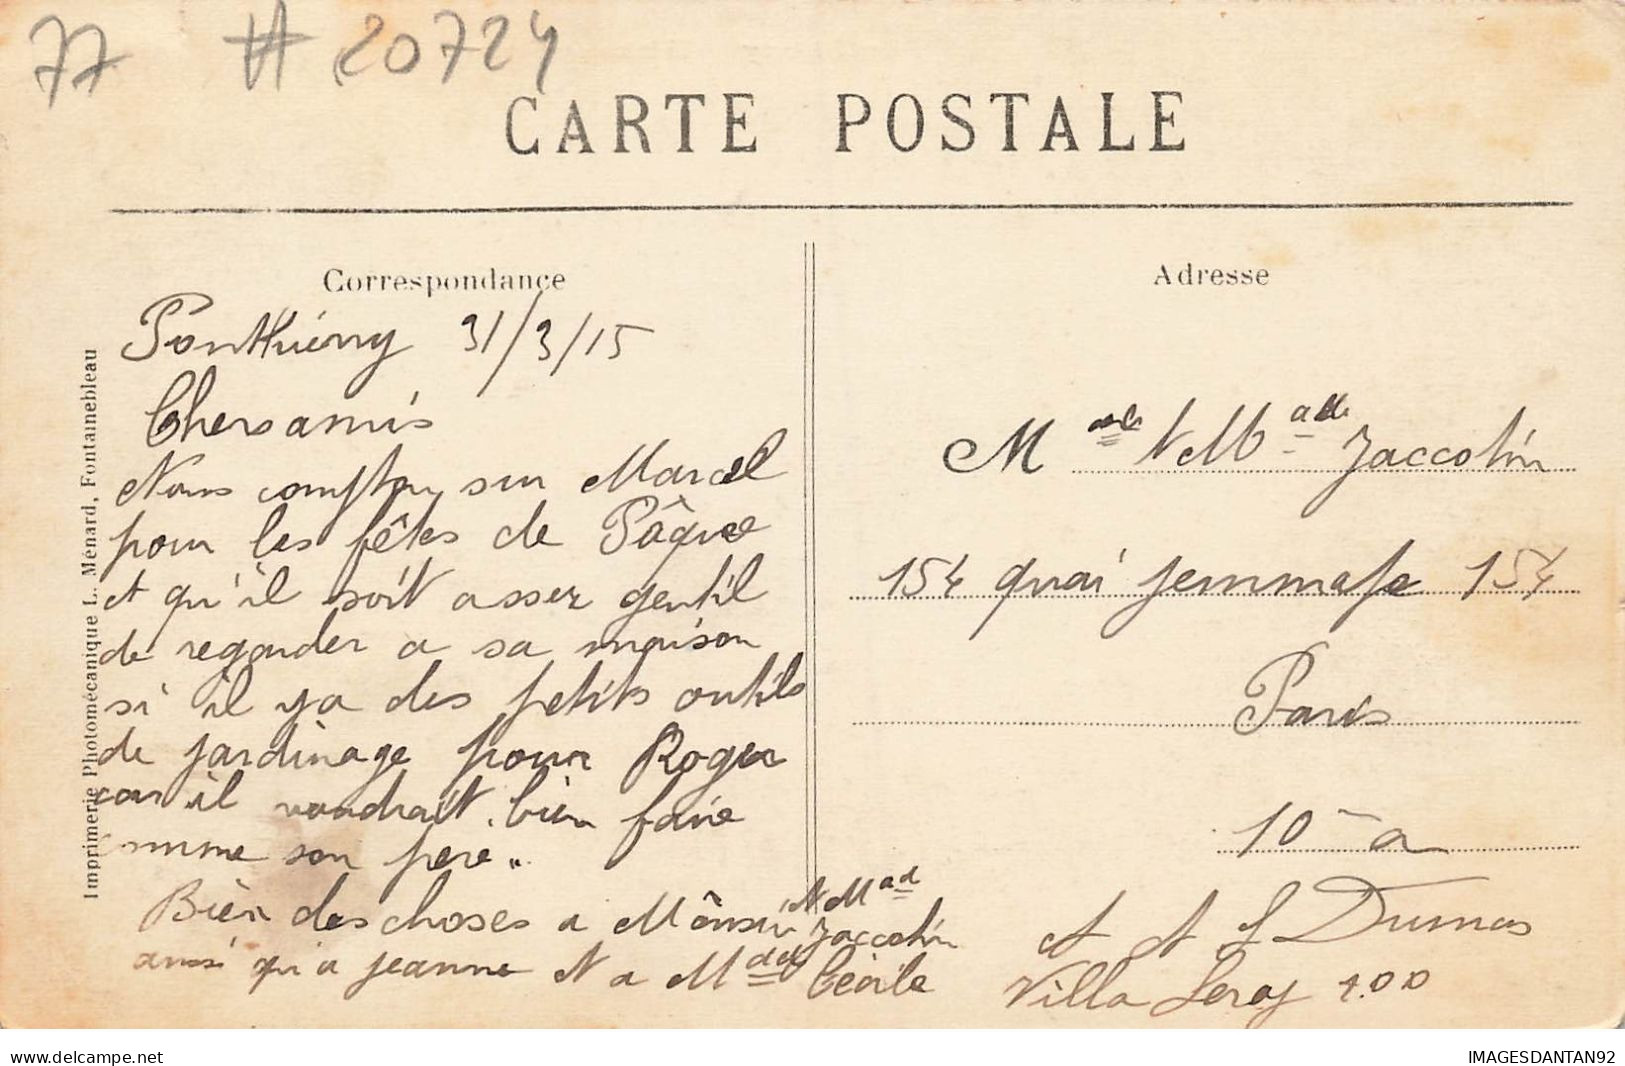 77 # 20724
CARTE POSTALE
Correspondance
Adresse
Imprimerie Photomécanique L. Ménard, Fontainebleau
Ponthierry 31/3/15
Chers amis
Nous compton sur Marcel
pour les fêtes de Pâque
et qu'il soit assez gentil
de regarder a sa maison
si il ya des petits outils
de jardinage pour Roger
car il voudrait bien faire
comme son pere.
Bien des choses a Monsieur et Mad Jaccotin
ainsi qu'a Jeanne et a Mdelle Cécile
M et Mad Jaccotin
154 quai Jemmape 154
Paris
10 a
Dumas
Villa Leroy 100
www.delcampe.net
IMAGESDANTAN92